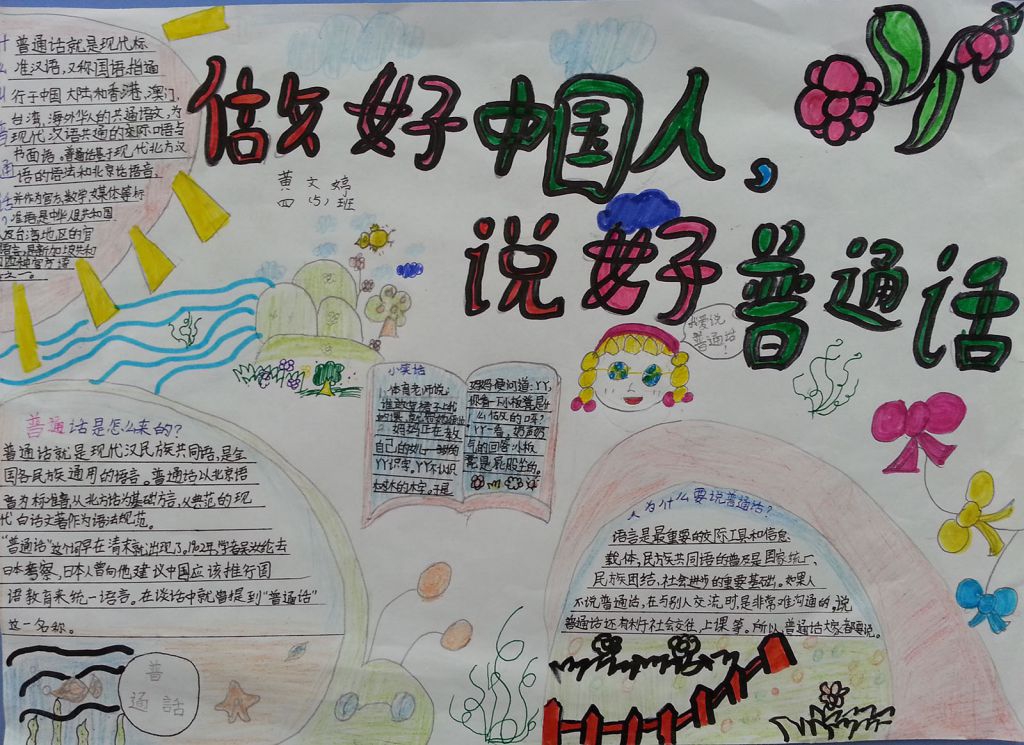 做好中国人,
说好普通话
黄文婷
四(5)班
普通话就是现代标
准汉语,又称国语,指通
行于中国大陆和香港,澳门、
台湾,海外华人的共通语文,为
现代汉语共通的交际口语与
书面语。普通话基于现代北方汉
语的语法和北京话语音,
并作为官方,教学,媒体等标
准语是中华人民共和国
台湾地区的官
我爱说
普通话!
小笑话
体育老师说:
妈妈正在教
自己的幼儿
丫丫识字,丫丫不认识
木木的木字。于是
妈妈便问道:丫丫,
你看一下小板凳是什
么做的呀?
丫丫一看,奶声奶
气的回答:小板
凳是屁股坐的。
普通话是怎么来的?
普通话就是现代汉民族共同语,是全
国各民族通用的语言。普通话以北京语
音为标准音,从北方话为基础方言,以典范的现
代白话文著作为语法规范。
“普通话”这个词早在清末就出现了。1902年,学者吴汝纶去
日本考察,日本人曾向他建议中国应该推行国
语教育来统一语言。在谈话中就曾提到“普通话”
这一名称。
普
通話
为什么要说普通话?
语言是最重要的交际工具和信息
载体,民族共同语的普及是国家统一、
民族团结,社会进步的重要基础。如果人
不说普通话,在与别人交流时,是非常难沟通的,说
普通话还有利于社会交往,上课等。所以,普通话大家都要说。